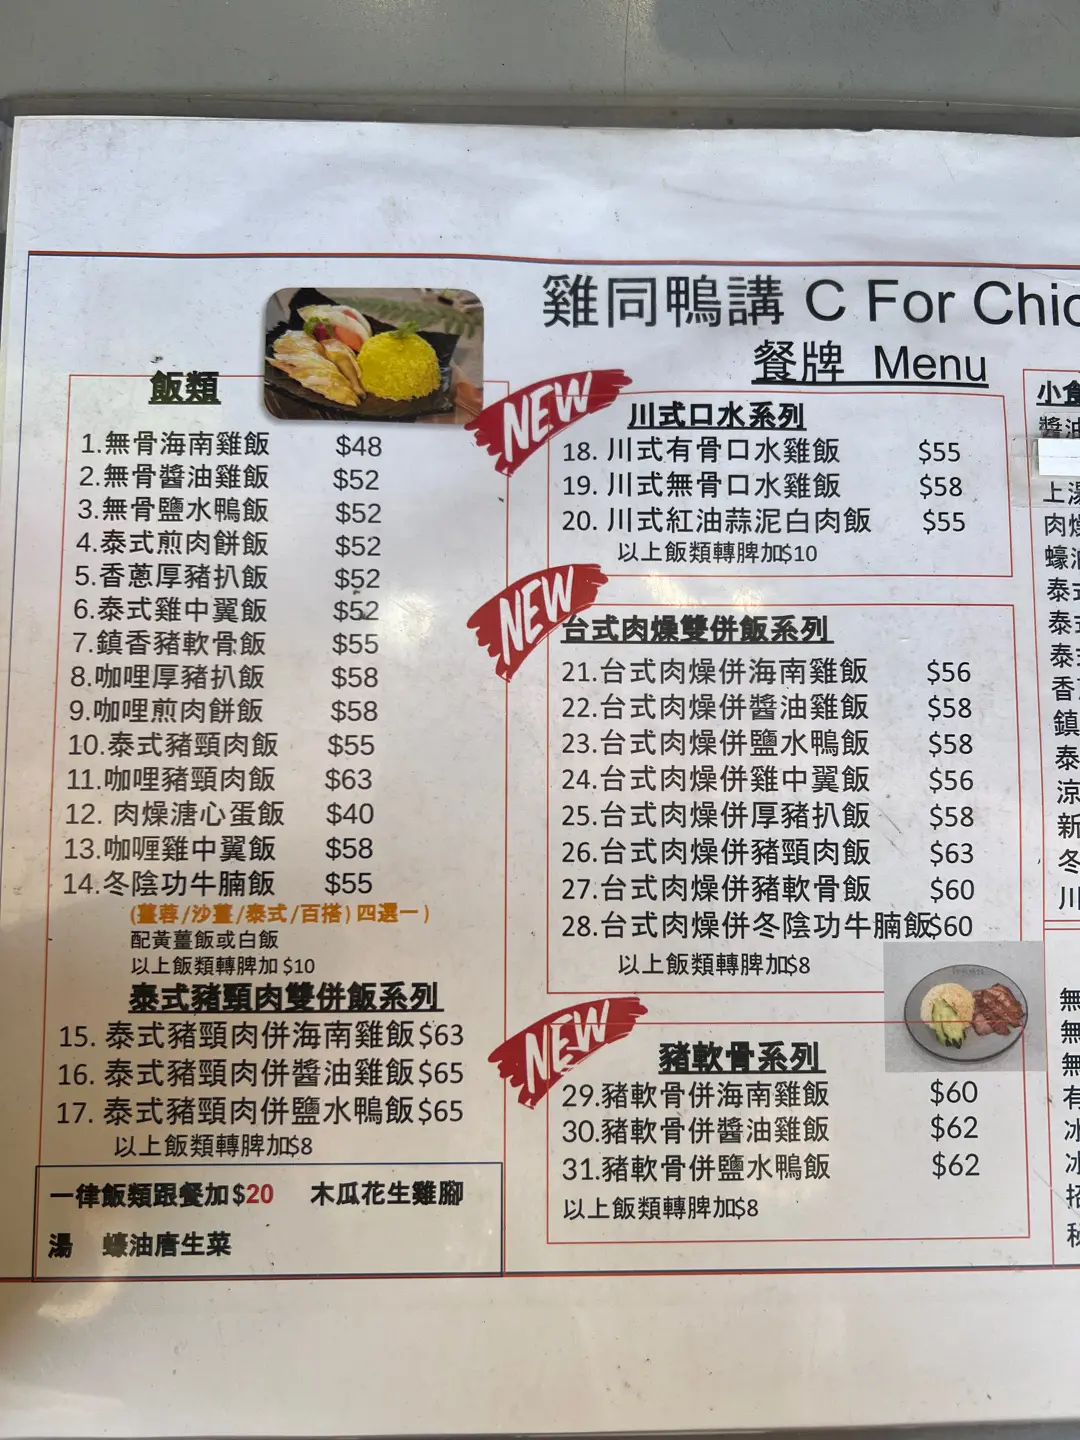 雞同鴨講 C For Chic
餐牌 Menu
飯類
1.無骨海南雞飯 $48
2.無骨醬油雞飯 $52
3.無骨鹽水鴨飯 $52
4.泰式煎肉餅飯 $52
5.香蔥厚豬扒飯 $52
6.泰式雞中翼飯 $52
7.鎮香豬軟骨飯 $55
8.咖哩厚豬扒飯 $58
9.咖哩煎肉餅飯 $58
10.泰式豬頸肉飯 $55
11.咖哩豬頸肉飯 $63
12. 肉燥溏心蛋飯 $40
13.咖喱雞中翼飯 $58
14.冬陰功牛腩飯 $55
(薑蓉/沙薑/泰式/百搭)四選一)
配黃薑飯或白飯
以上飯類轉脾加 $10
泰式豬頸肉雙併飯系列
15. 泰式豬頸肉併海南雞飯$63
16. 泰式豬頸肉併醬油雞飯$65
17. 泰式豬頸肉併鹽水鴨飯$65
以上飯類轉脾加$8
一律飯類跟餐加$20 木瓜花生雞腳
湯 蠔油唐生菜
NEW
川式口水系列
18. 川式有骨口水雞飯 $55
19. 川式無骨口水雞飯 $58
20. 川式紅油蒜泥白肉飯 $55
以上飯類轉脾加$10
NEW
台式肉燥雙併飯系列
21.台式肉燥併海南雞飯 $56
22.台式肉燥併醬油雞飯 $58
23.台式肉燥併鹽水鴨飯 $58
24.台式肉燥併雞中翼飯 $56
25.台式肉燥併厚豬扒飯 $58
26.台式肉燥併豬頸肉飯 $63
27.台式肉燥併豬軟骨飯 $60
28.台式肉燥併冬陰功牛腩飯$60
以上飯類轉脾加$8
NEW
豬軟骨系列
29.豬軟骨併海南雞飯 $60
30.豬軟骨併醬油雞飯 $62
31.豬軟骨併鹽水鴨飯 $62
以上飯類轉脾加$8
小食
醬油
上湯
肉燥
蠔油
泰式
泰式
泰式
香
鎮
泰
涼
新
冬
川
無
無
無
有
冰
冰
招
秘